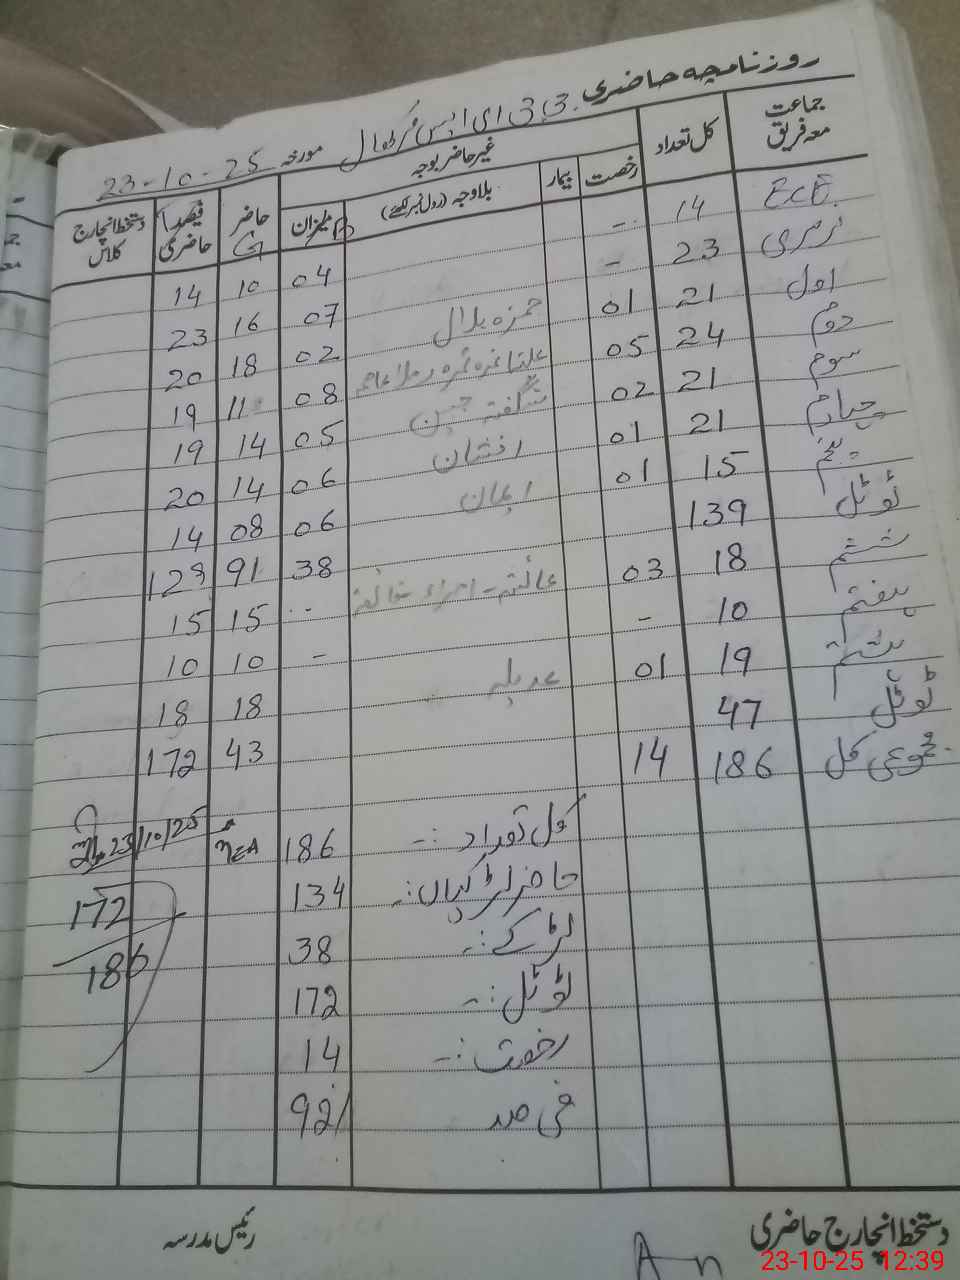 روزنامچہ حاضری جی جی ای ایس
مورخہ 23-10-25
جماعت معہ فریق کل تعداد غیر حاضر بوجہ رخصت بیمار بلاوجہ (رول نمبر لکھئے) میزان B حاضر G فیصد حاضری دستخط انچارج کلاس
E.C.E. 14 - 04 10 14
نرسری 23 - 07 16 23
اول 21 01 حمزہ بلال 02 18 20
دوم 24 05 08 11 19
سوم 21 02 شگفتہ جبین 05 14 19
چہارم 21 01 افشان 06 14 20
پنجم 15 01 ایمان 06 08 14
ٹوٹل 139 38 91 129
ششم 18 03 عائشہ - .. 15 15
ہفتم 10 - - 10 10
ہشتم 19 01 عدیلہ 18 18
ٹوٹل 47 43 172
مجموعی کل 186 14
کل تعداد :- 186 23/10/25
حاضر لڑکیاں :- 134 172
لڑکے :- 38 186
ٹوٹل :- 172
رخصت :- 14
فی صد 92/
دستخط انچارج حاضری رئیس مدرسہ
An
23-10-25 12:39